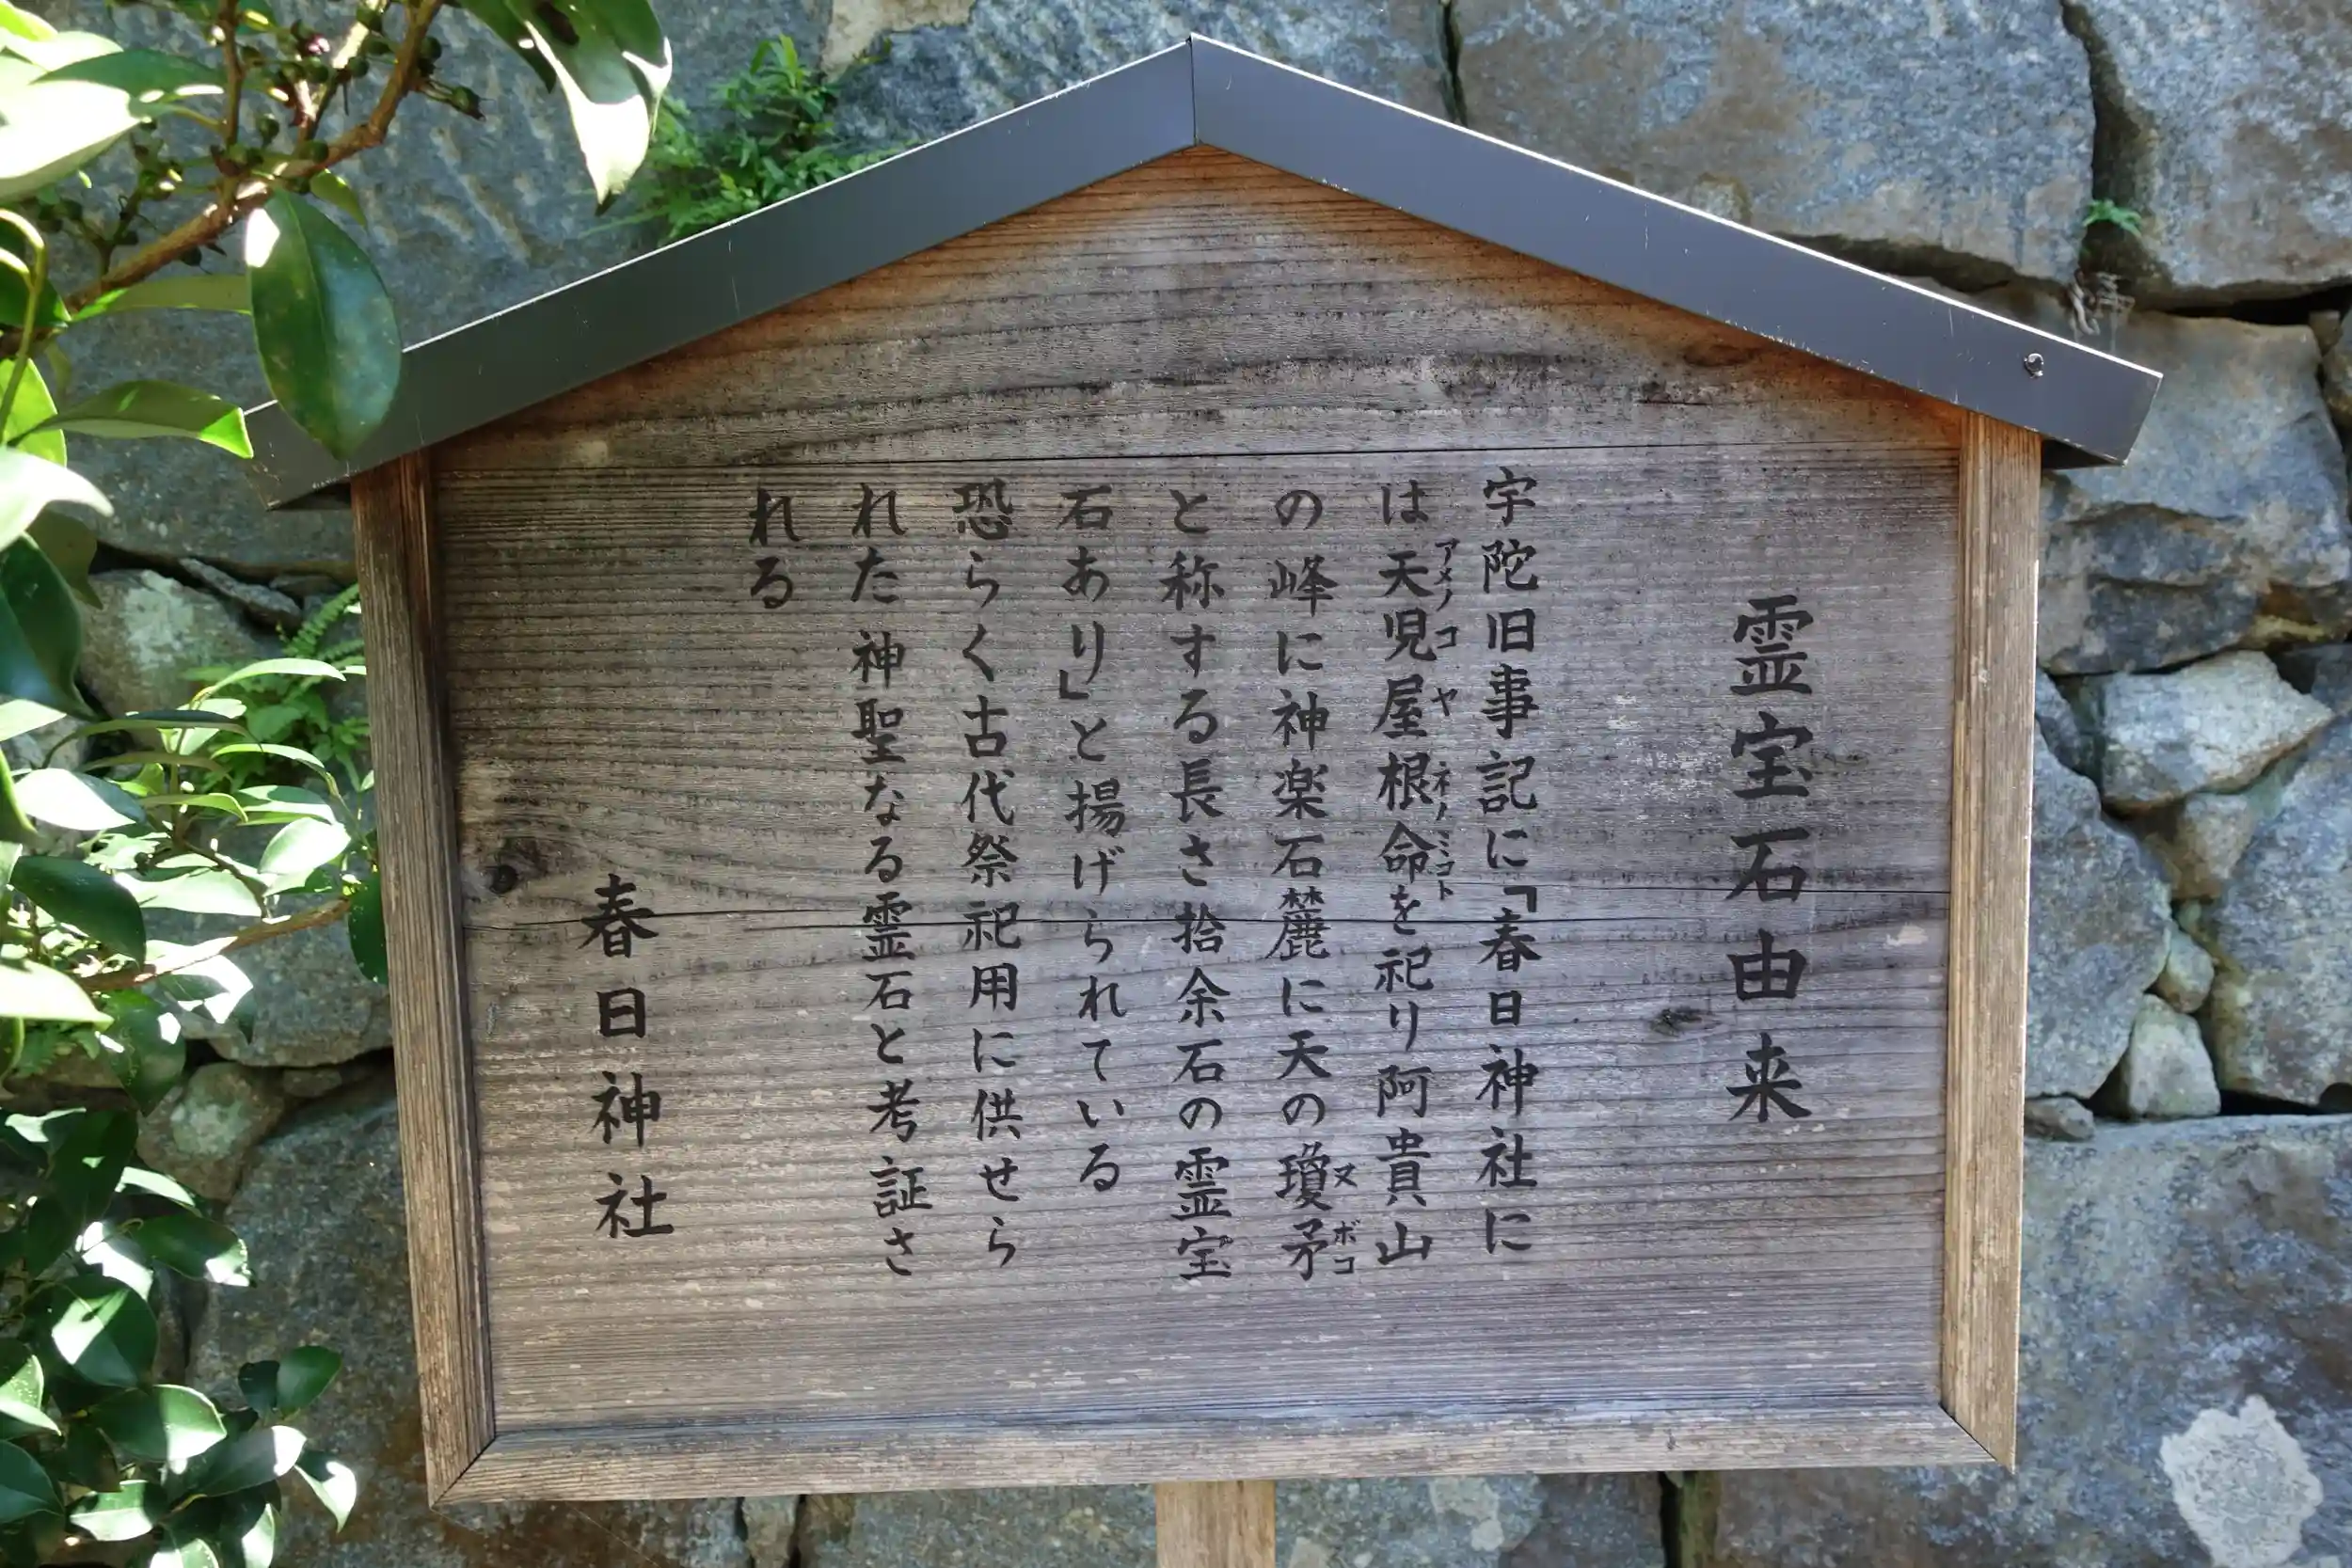 霊宝石由来
宇陀旧事記に「春日神社に
は天児屋根命を祀り阿貴山
アメノコヤネノミコト
の峰に神楽石麓に天の瓊矛
ヌボコ
と称する長さ拾余石の霊宝
石あり」と揚げられている
恐らく古代祭祀用に供せら
れた神聖なる霊石と考証さ
れる
春日神社